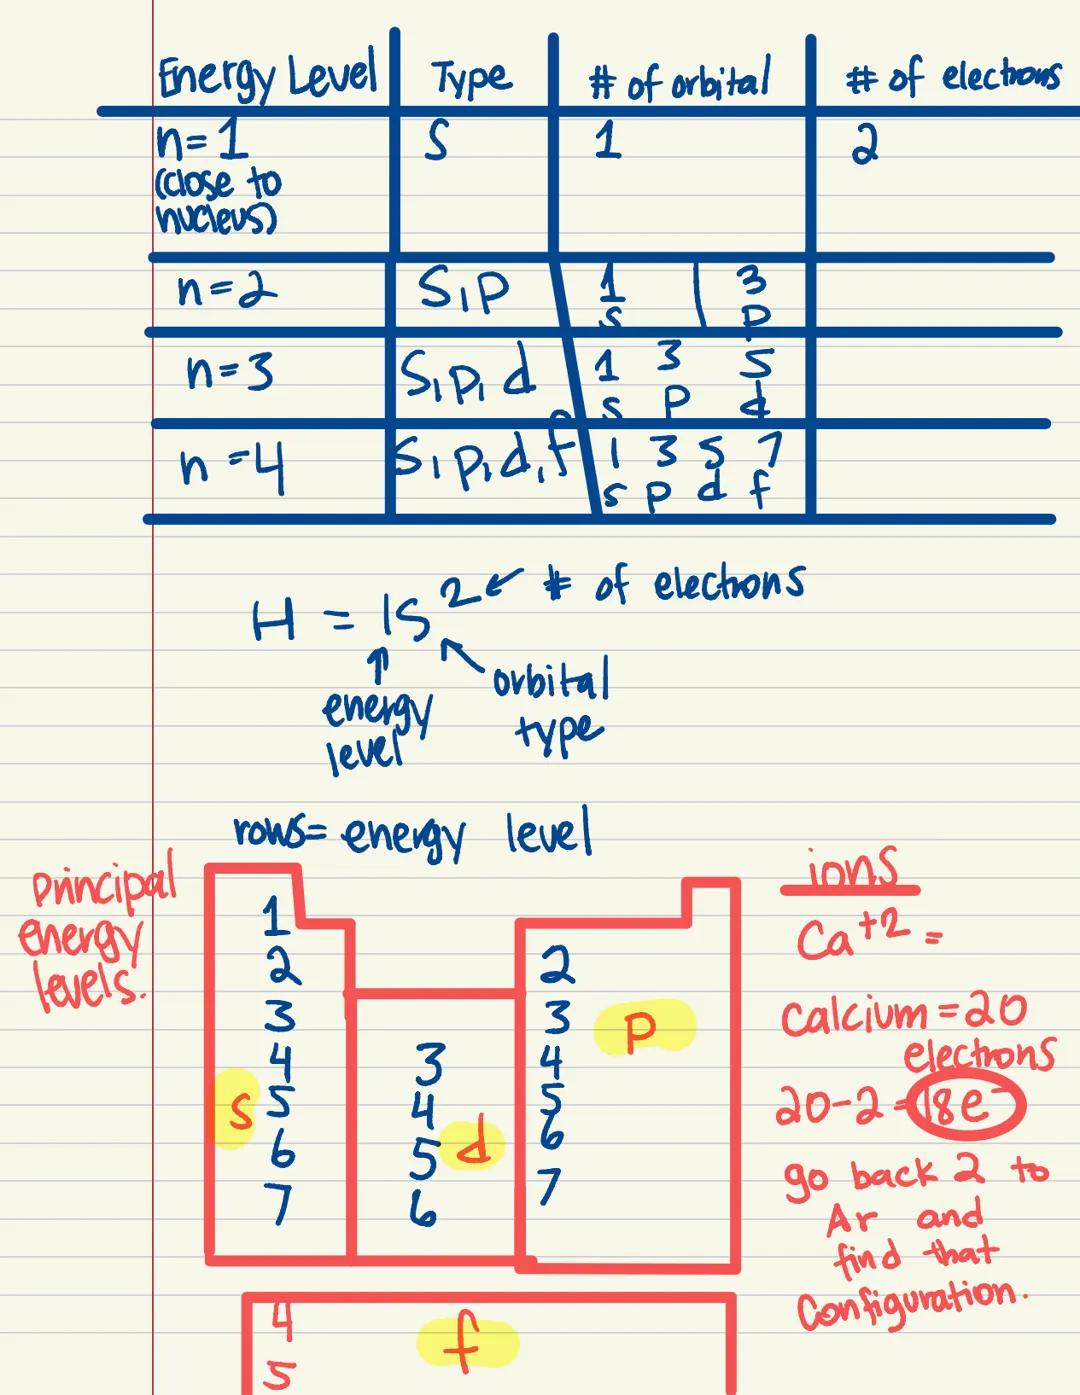 Energy Level Type # of orbital # of electrons
n=1 S 1 2
(close to
nucleus)
n=2 S,P 1 3
S P
n=3 S,P,d 1 3 5
S P d
n=4 S,P,d,f 1 3 5 7
S P d f
H = 1S² ← # of electrons
energy
level
orbital
type
rows= energy level
Principal
energy
levels.
1
2
3
4
5
6
7
S
3
4
5
6
d
2
3
4
5
6
7
P
4
5
f
ions
Ca⁺² =
Calcium = 20
electrons
20-2 = 18e⁻
go back 2 to
Ar and
find that
Configuration.